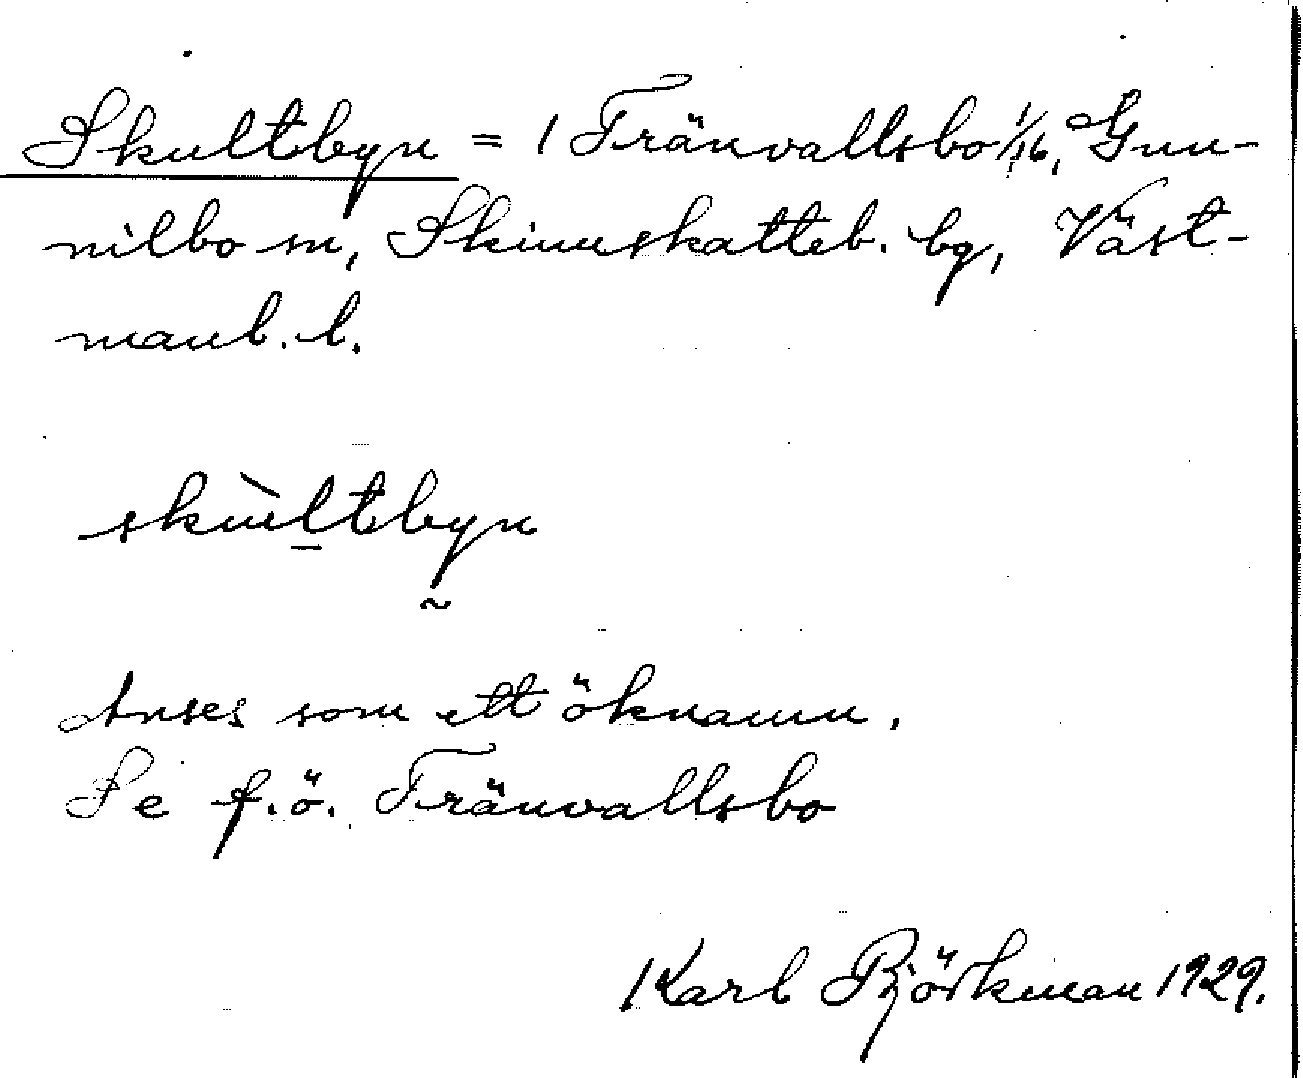 Skultbyn = 1 Tränvallsbo 1/16, Gun-
nilbo sn, Skinnskatteb. bg, Väst-
manl. l.
skùltbyn
Anses som ett öknamn.
Se f.ö. Tränvallsbo
Karl Björkman 1929.